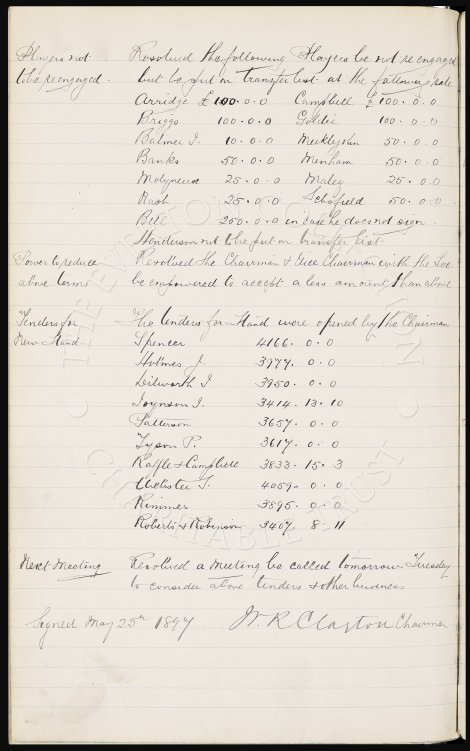 Players not Resolved the following Players be not re engaged
to be re engaged. but be put on transfer list at the following rate
Arridge £100.0.0 Campbell £100.0.0
Briggs 100.0.0 Goldie 100.0.0
Balmer J. 10.0.0 Meiklejohn 50.0.0
Banks 50.0.0 Menham 50.0.0
Molyneux 25.0.0 Maley 25.0.0
Nash 25.0.0 Schofield 50.0.0
Bell 250.0.0 in case he does not sign.
Henderson not to be put on transfer list.
Power to reduce Resolved the Chairman & Vice Chairman with the Sec
above terms be empowered to accept a less amount than above
Tenders for The tenders for Stand were opened by the Chairman
New Stand Spencer 4166.0.0
Holmes J. 3977.0.0
Dilworth J 3950.0.0
Joynson J. 3414.13.10
Patterson 3657.0.0
Tyson P. 3617.0.0
Raffle & Campbell 3833.15.3
Webster J. 4059.0.0
Rimmer 3895.0.0
Roberts & Robinson 3407.8.11
Next Meeting Resolved a meeting be called tomorrow Tuesday
to consider above tenders & other business
Signed May 25th 1897 W. R Clayton Chairman
THE EVERTON COLLECTION
CHARITABLE TRUST